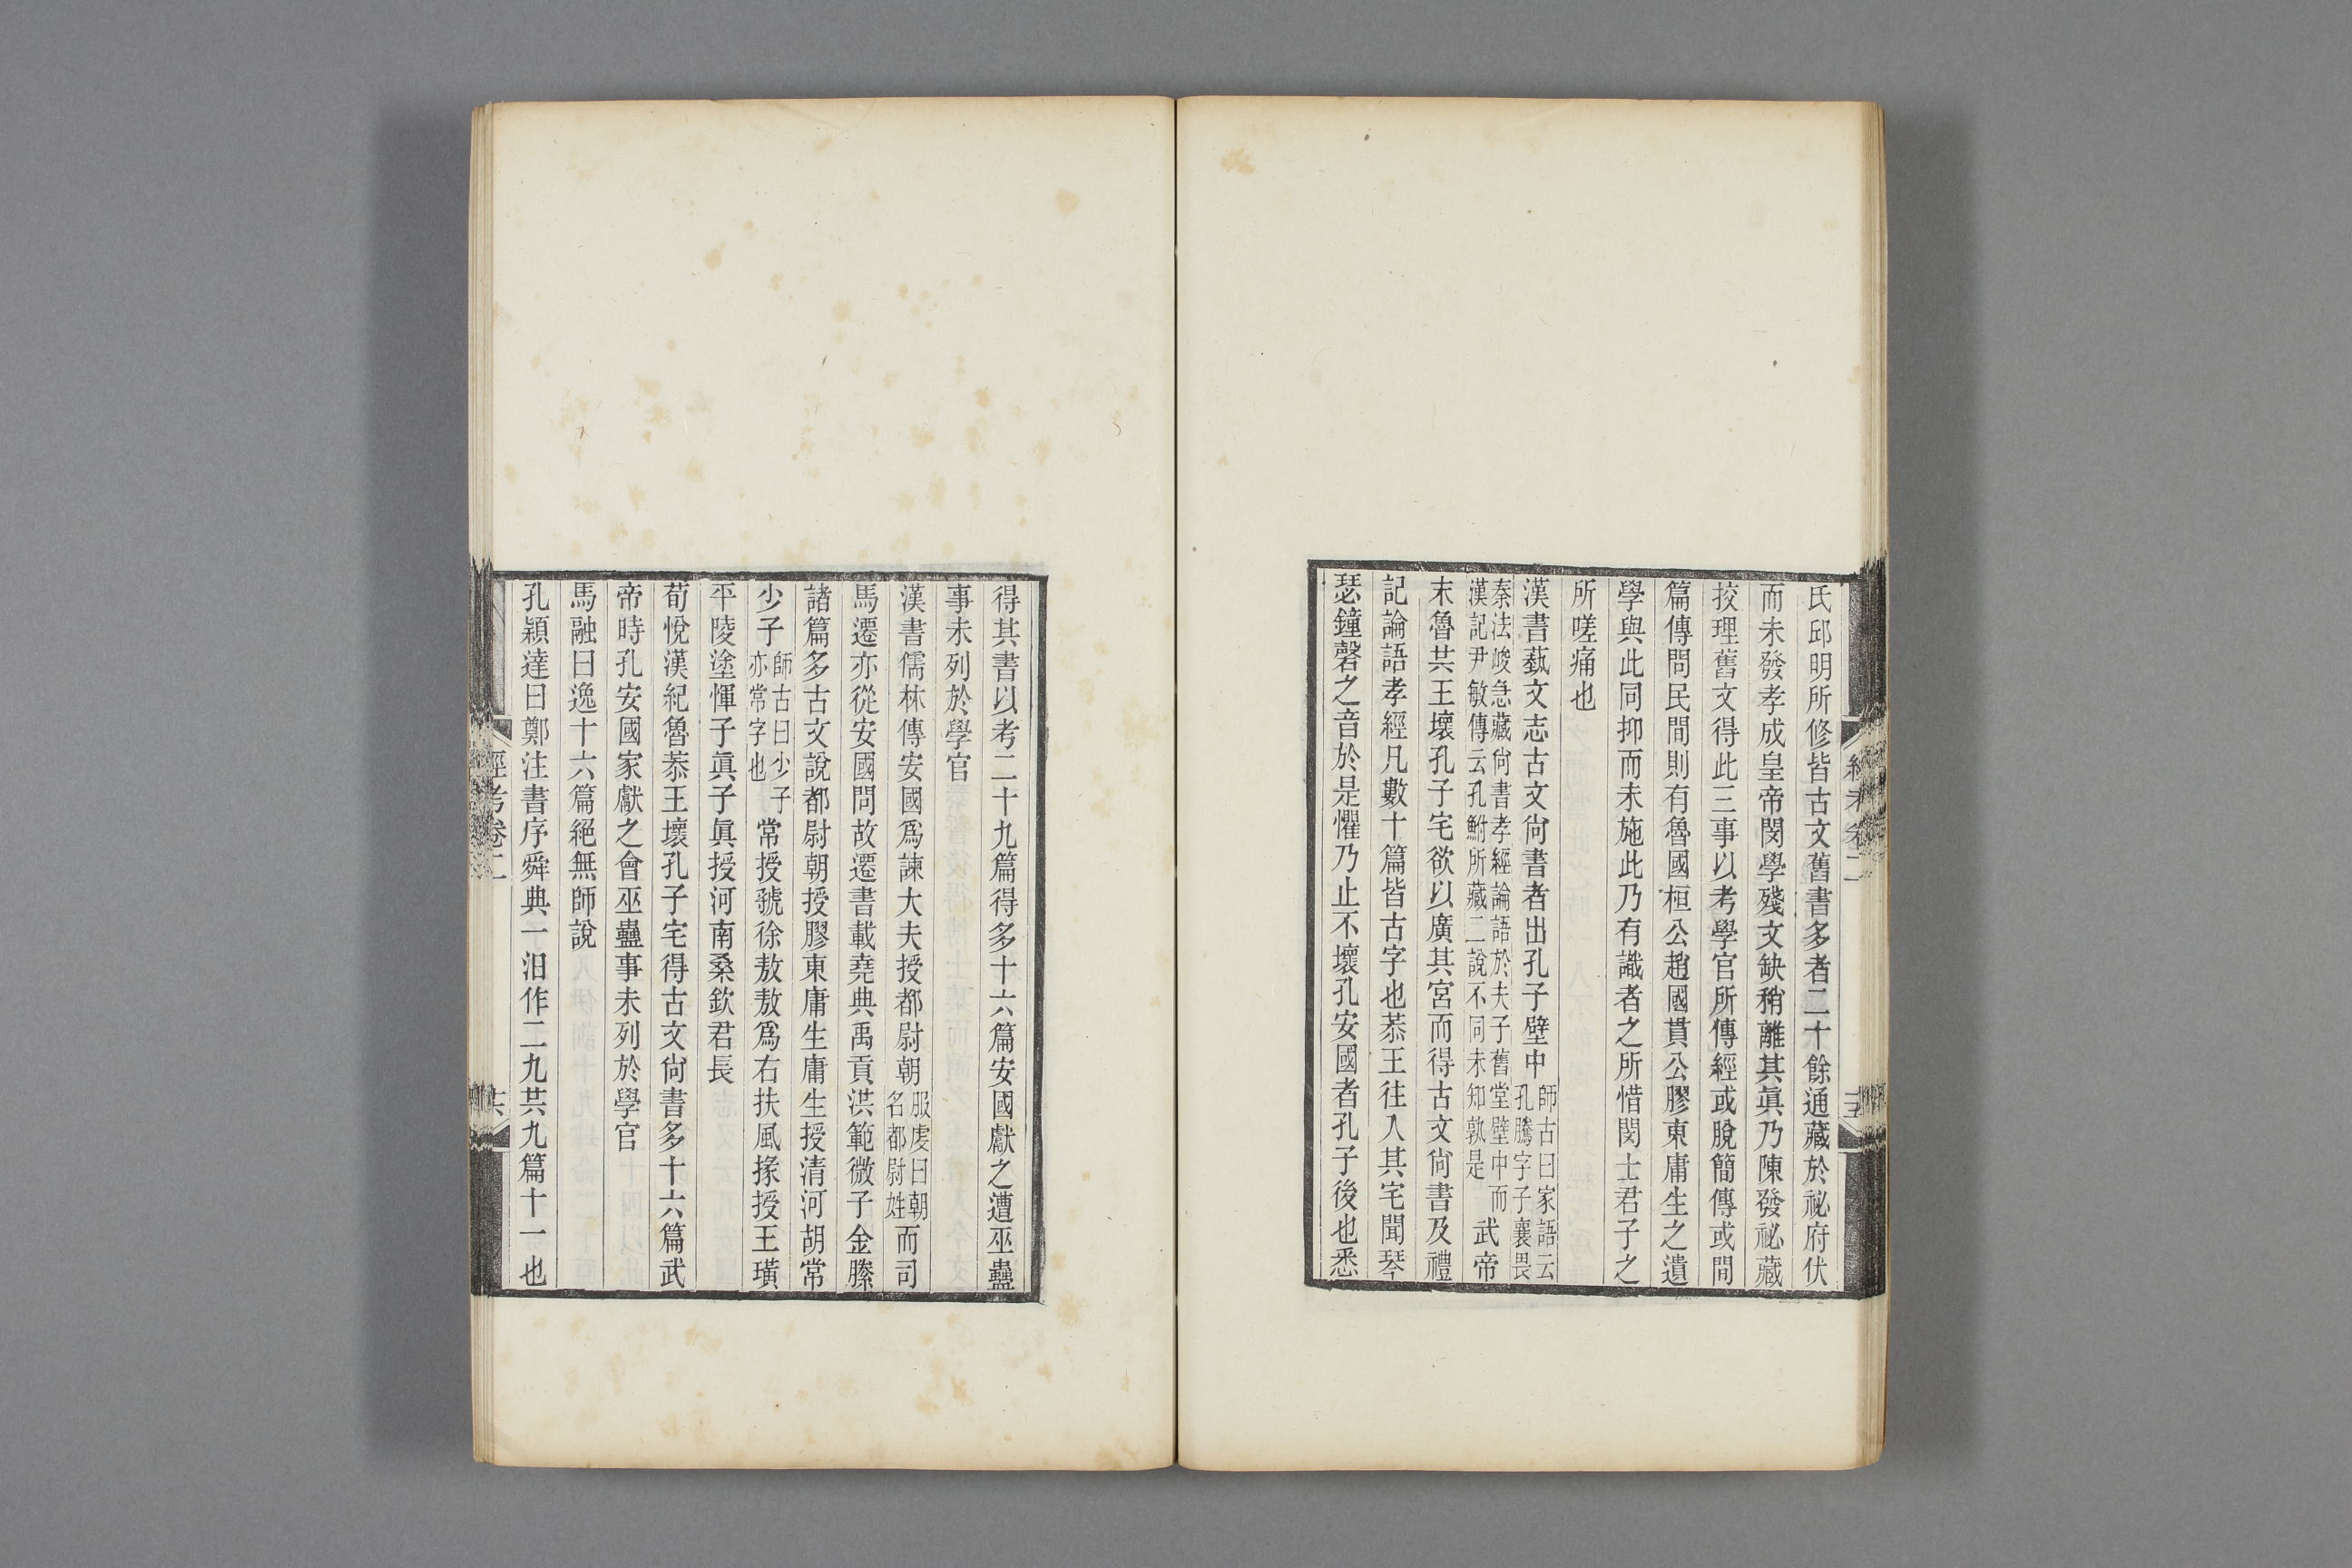 氏邱明所修皆古文舊書多者二十餘通藏於祕府伏
而未發孝成皇帝閔學殘文缺稍離其眞乃陳發祕藏
挍理舊文得此三事以考學官所傳經或脫簡傳或間
篇傳問民間則有魯國桓公趙國貫公膠東庸生之遺
學與此同抑而未施此乃有識者之所惜閔士君子之
所嗟痛也
漢書蓺文志古文尙書者出孔子壁中師古曰家語云孔騰字子襄畏
秦法峻急藏尙書孝經論語於夫子舊堂壁中而漢記尹敏傳云孔鮒所藏二說不同未知孰是武帝
末魯共王壞孔子宅欲以廣其宮而得古文尙書及禮
記論語孝經凡數十篇皆古字也恭王往入其宅聞琴
瑟鐘磬之音於是懼乃止不壞孔安國者孔子後也悉
得其書以考二十九篇得多十六篇安國獻之遭巫蠱
事未列於學官
漢書儒林傳安國爲諫大夫授都尉朝服虔曰朝名都尉姓而司
馬遷亦從安國問故遷書載堯典禹貢洪範微子金縢
諸篇多古文說都尉朝授膠東庸生庸生授清河胡常
少子師古曰少子亦常字也常授虢徐敖敖爲右扶風掾授王璜
平陵塗惲子眞子眞授河南桑欽君長
荀悅漢紀魯恭王壞孔子宅得古文尙書多十六篇武
帝時孔安國家獻之會巫蠱事未列於學官
馬融曰逸十六篇絕無師說
孔穎達曰鄭注書序舜典一汩作二九共九篇十一也
經考卷二